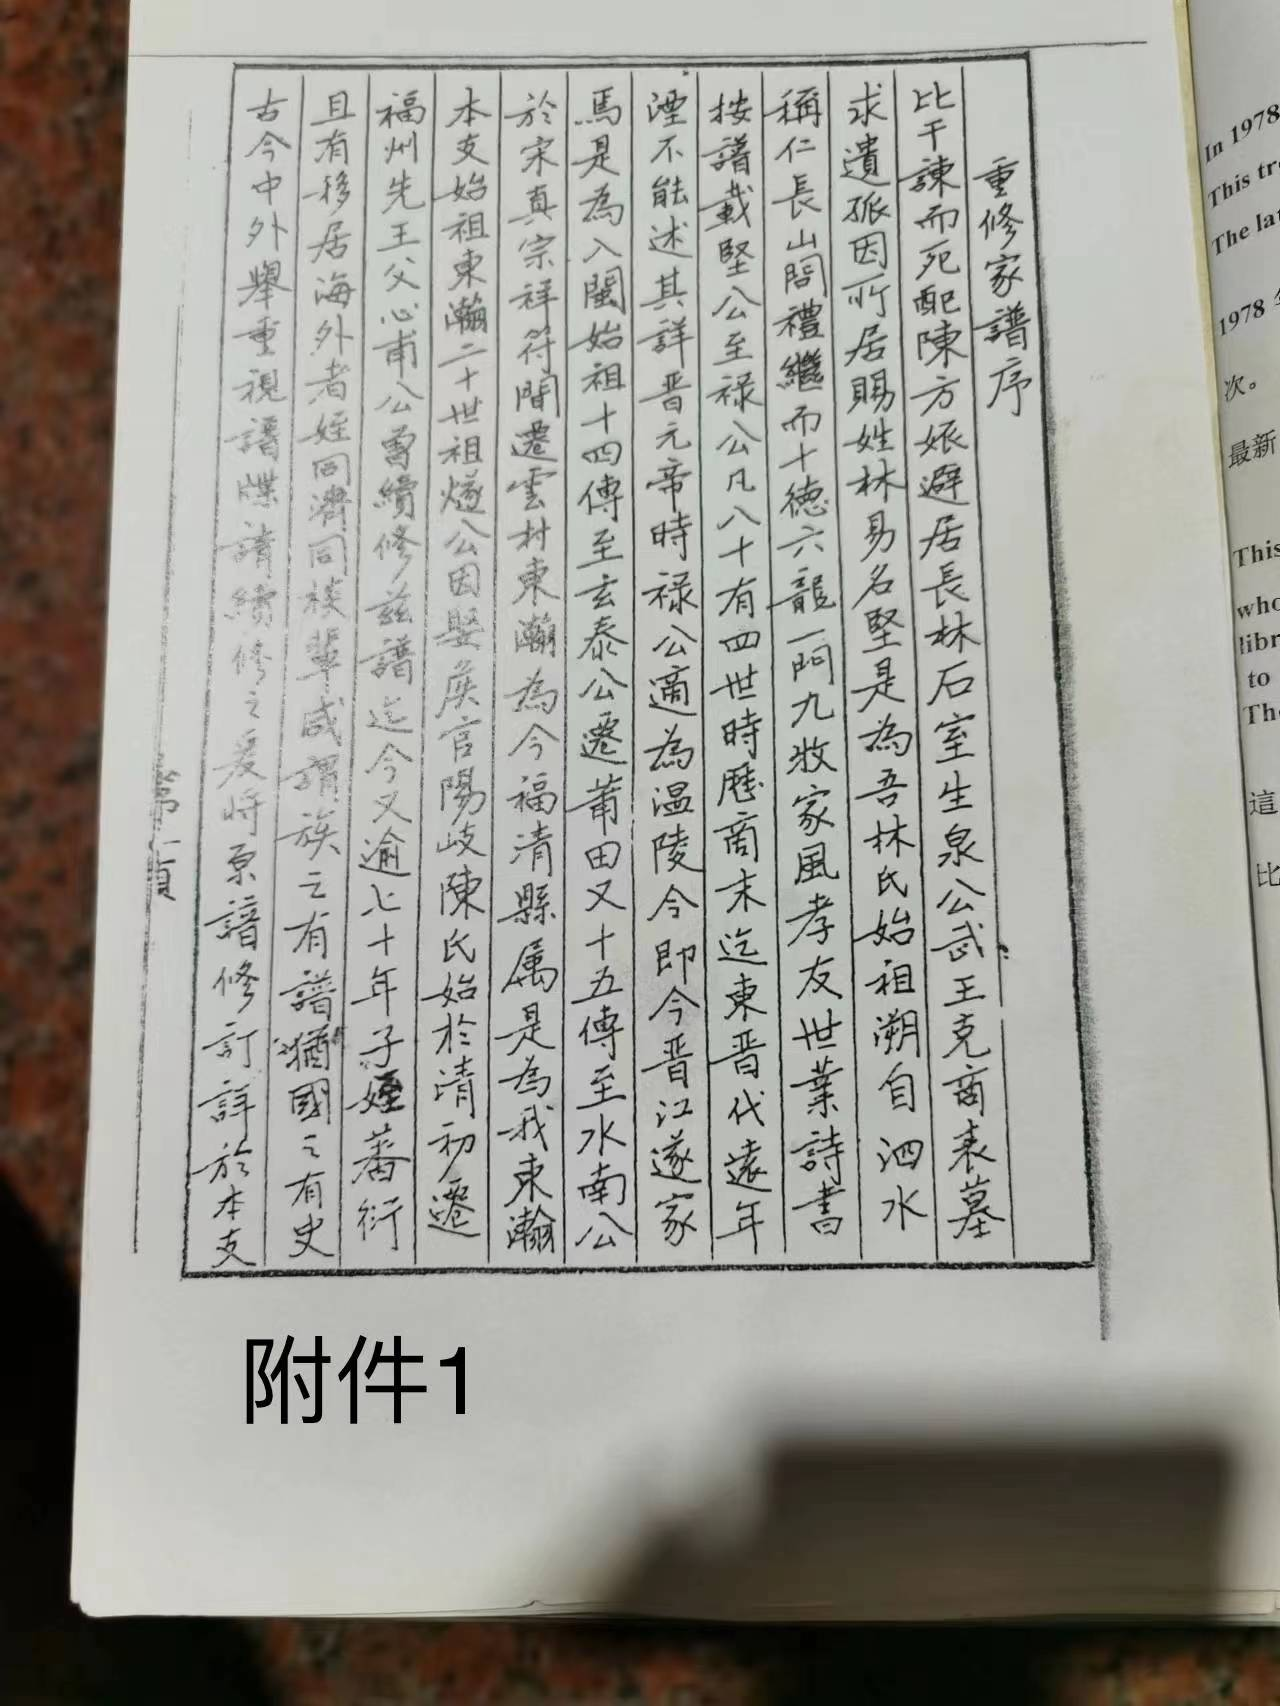 重修家譜序
比干諫而死配陳方娠避居長林石室生泉公武王克商表墓
求遺孤因所居賜姓林易名堅是為吾林氏始祖溯自泗水
稱仁長山問禮繼而十德六龍一門九牧家風孝友世業詩書
按譜載堅公至祿公凡八十有四世時歷商末迄東晋代遠年
湮不能述其詳晋元帝時祿公適為温陵令即今晋江遂家
馬是為入閩始祖十四傳至玄泰公遷莆田又十五傳至水南公
於宋真宗祥符間遷雲村東瀚為今福清縣属是為我東瀚
本支始祖東瀚二十世祖燧公因娶侯官陽岐陳氏始於清初遷
福州先王父心甫公曾續修兹譜迄今又逾七十年子姪蕃衍
且有移居海外者姪同濟同族輩咸謂族之有譜猶國之有史
古今中外舉重視譜牒請續修之爰將原譜修訂詳於本支
第一頁
附件1
In 1978
This tre
The lat
1978
次。
最新
This
who
libr
to
The
這
比